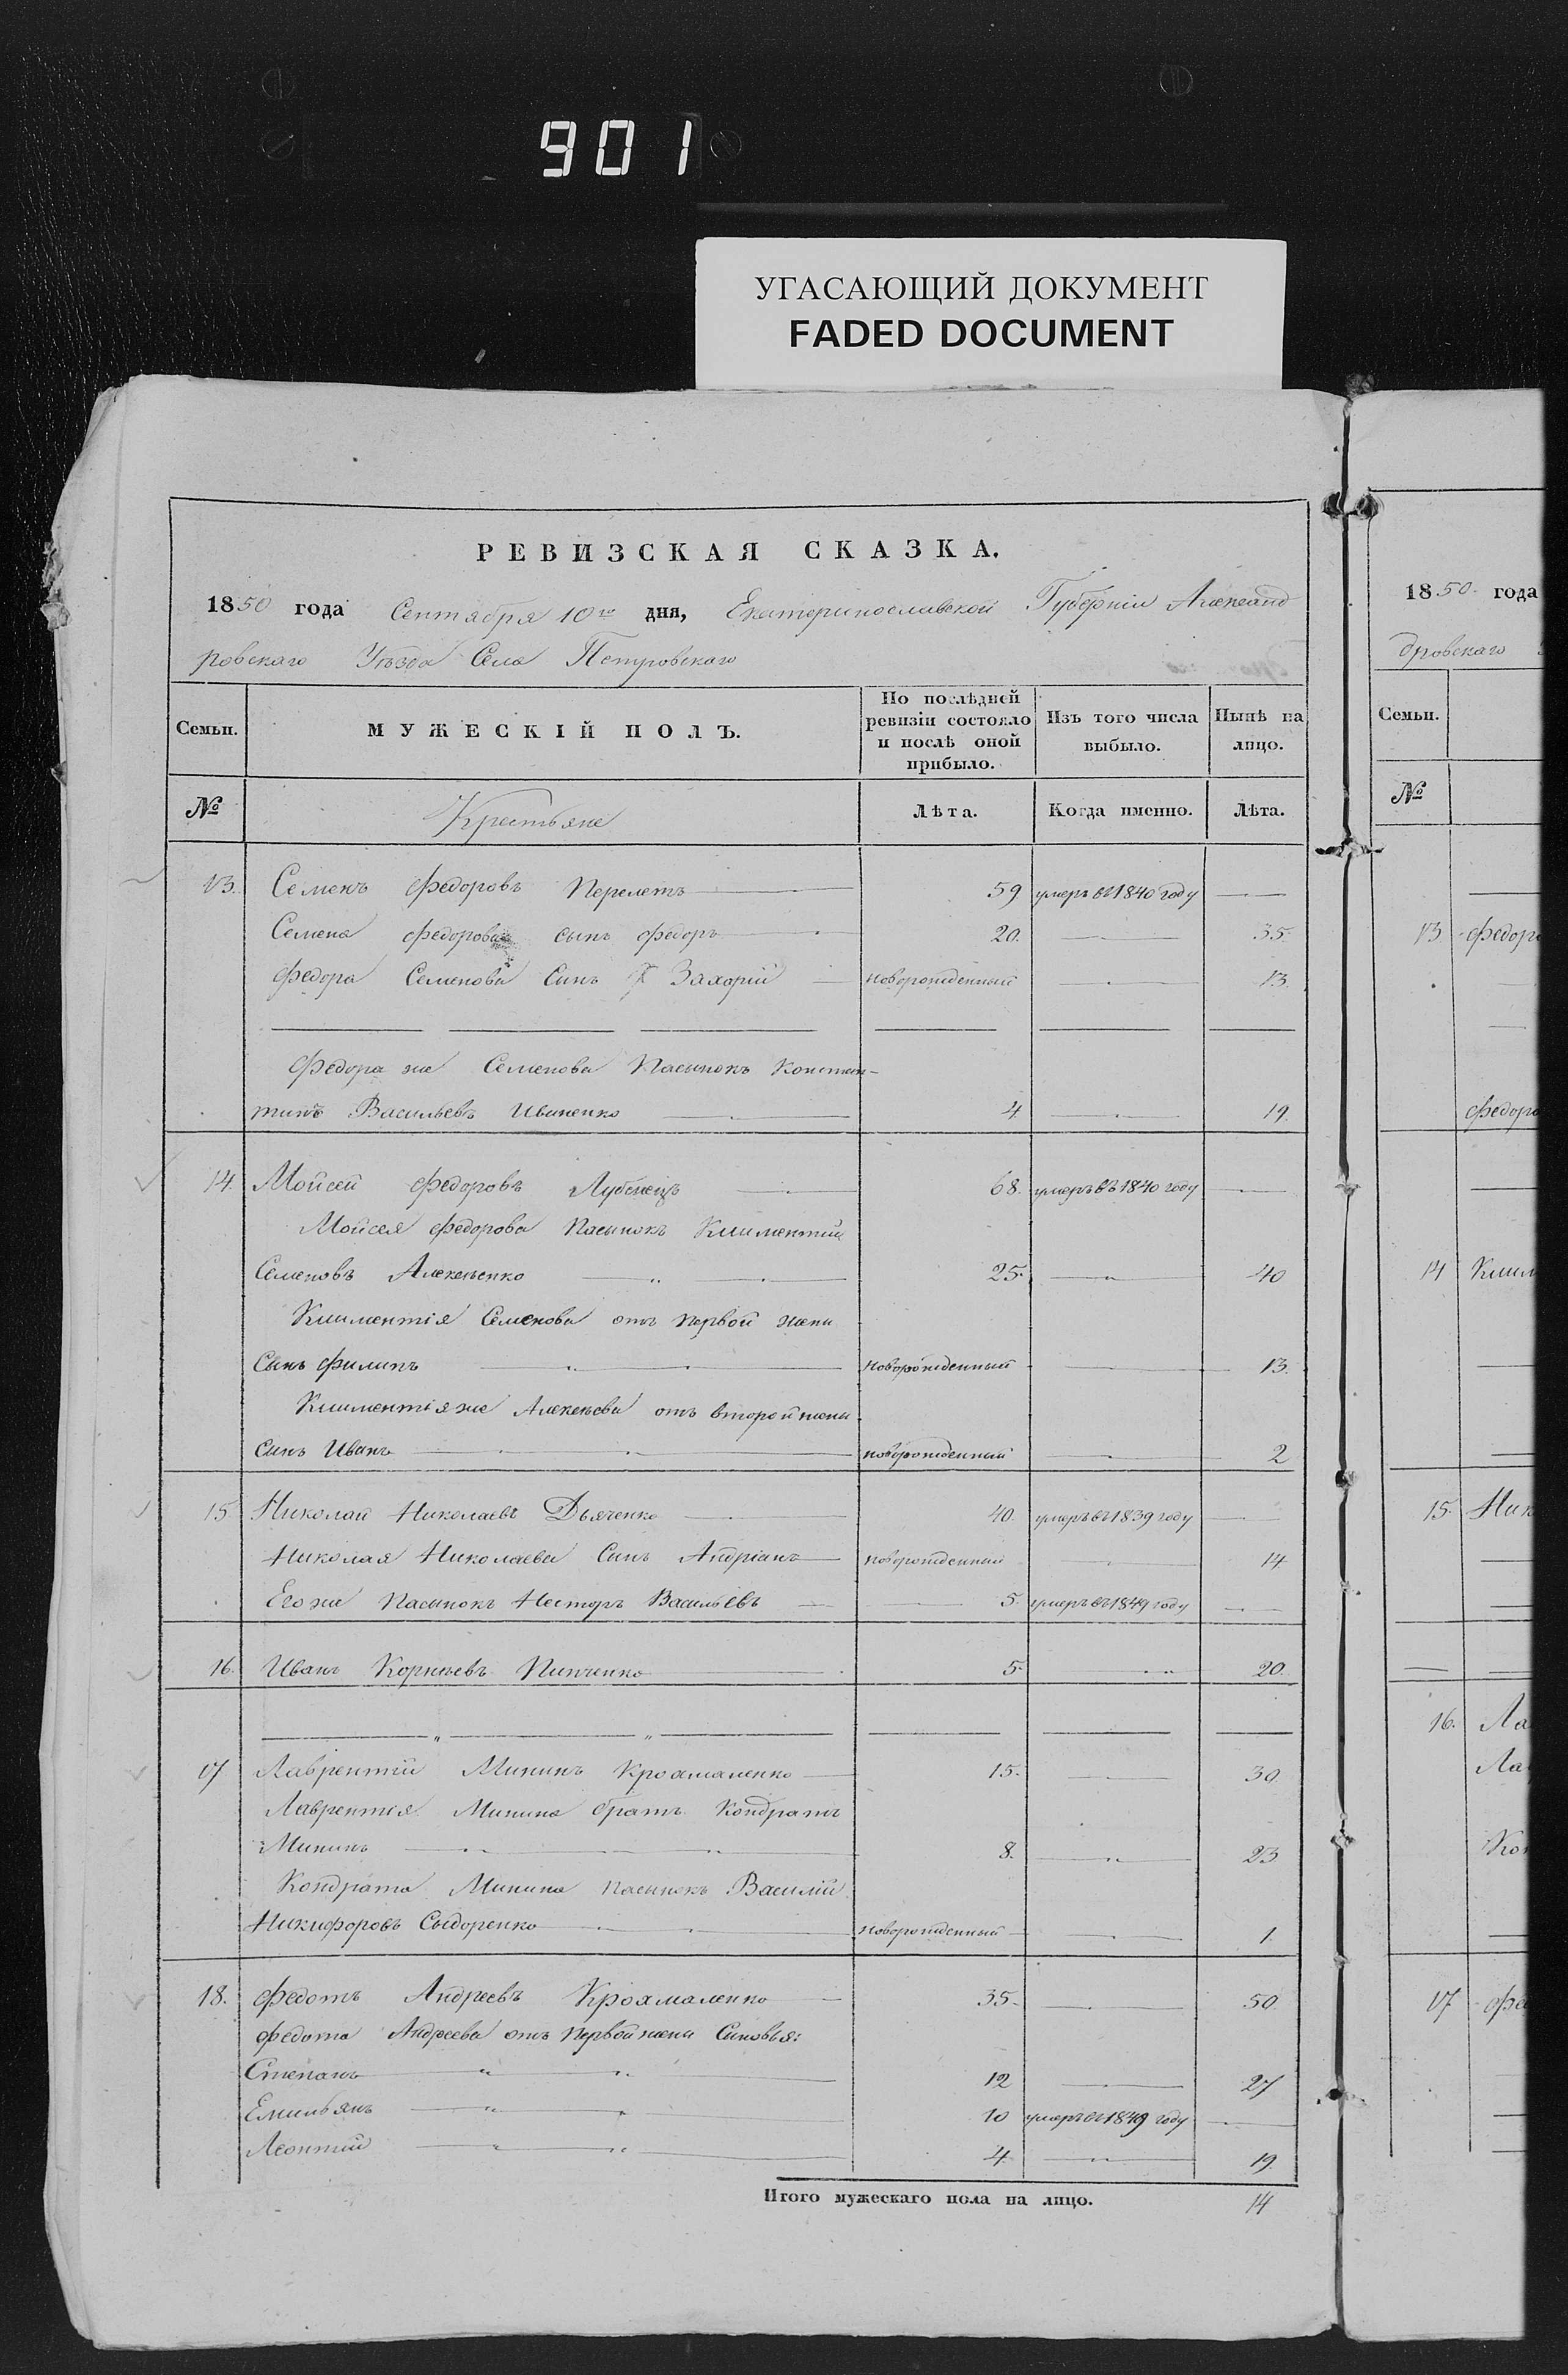 901
УГАСАЮЩИЙ ДОКУМЕНТ
FADED DOCUMENT
РЕВИЗСКАЯ СКАЗКА.
1850 года Сентября 10го дня, Екатеринославской Губерніи Александ
ровскаго Уѣзда Села Петровскаго
Семьи. МУЖЕСКІЙ ПОЛЪ. По послѣдней ревизіи состояло и послѣ оной прибыло. Изъ того числа выбыло. Нынѣ на лицо.
№ Крестьяне Лѣта. Когда именно. Лѣта.
13. Семенъ Федоровъ Перелетъ 59 умеръ въ 1840 году
Семена Федорова сынъ Федоръ 20. 35.
Федора Семенова Синъ Захорій новорожденный 13.
Федора же Семенова Пасынокъ Констан-
тинъ Васильевъ Иваненко 4 19.
14. Мойсей Федоровъ Лубенецъ 68. умеръ въ 1840 году
Мойсея Федорова Пасынокъ Климентій
Семеновъ Алексѣенко 25. 40
Климентія Семенова отъ первой жены
Сынъ Филипъ новорожденный 13.
Климентія же Алексѣева отъ второй жены
синъ Иванъ новорожденный 2
15 Николай Николаевъ Дьяченко 40. умеръ въ 1839 году
Николая Николаева Синъ Андріанъ новорожденный 14
Его же Пасынокъ Несторъ Васильевъ 5. умеръ въ 1849 году
16. Иванъ Корнѣевъ Пинченко 5. 20.
17 Лаврентій Мининъ Крохмаленко 15. 30.
Лаврентія Минина братъ Кондратъ
Мининъ 8. 23
Кондрата Минина пасынокъ Василій
Никифоровъ Сыдоренко новорожденный 1.
18. Федотъ Андреевъ Крохмаленко 35. 50.
Федота Андреева отъ первой жены Синовья:
Степанъ 12 27
Емильянъ 10 умеръ въ 1849 году
Леонтий 4. 19.
Итого мужескаго пола на лицо. 14
1850. года
дровскаго
Семьи.
№
13. Федор
Федор
14 Клим
15. Ник
16. Ла
Ла
Кон
17 Фе